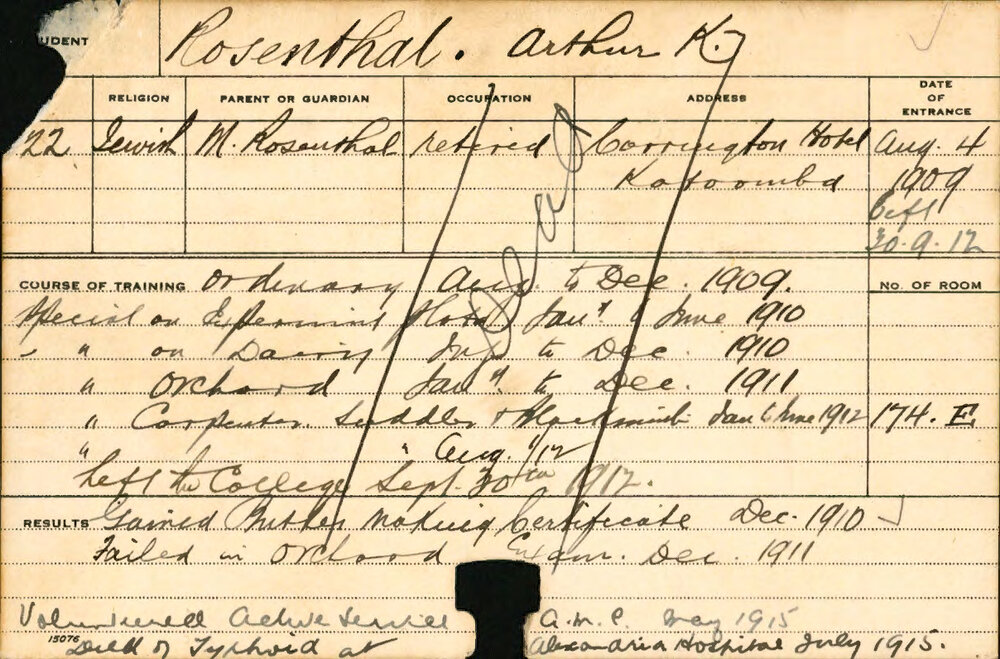 UDENT Rosenthal. Arthur K.
RELIGION PARENT OR GUARDIAN OCCUPATION ADDRESS DATE OF ENTRANCE
22 Jewish M. Rosenthal retired Carrington Hotel Aug. 4
Katoomba 1909
Left
30.9.12
Dead
COURSE OF TRAINING Ordinary Aug. to Dec. 1909. NO. OF ROOM
Special on Experiment Plots Jan. to June 1910
" " on Dairy July to Dec. 1910
" Orchard Jan. to Dec. 1911
" Carpenter Saddler & Blacksmith Jan to June 1912 174. E
" " Aug. /12
Left the College Sept. 30th 1912.
RESULTS Gained Butter Making Certificate Dec. 1910
Failed in Orchard Exam. Dec. 1911
Volunteered Active Service A.M.C. May 1915
15076 Died of Typhoid at Alexandria Hospital July 1915.